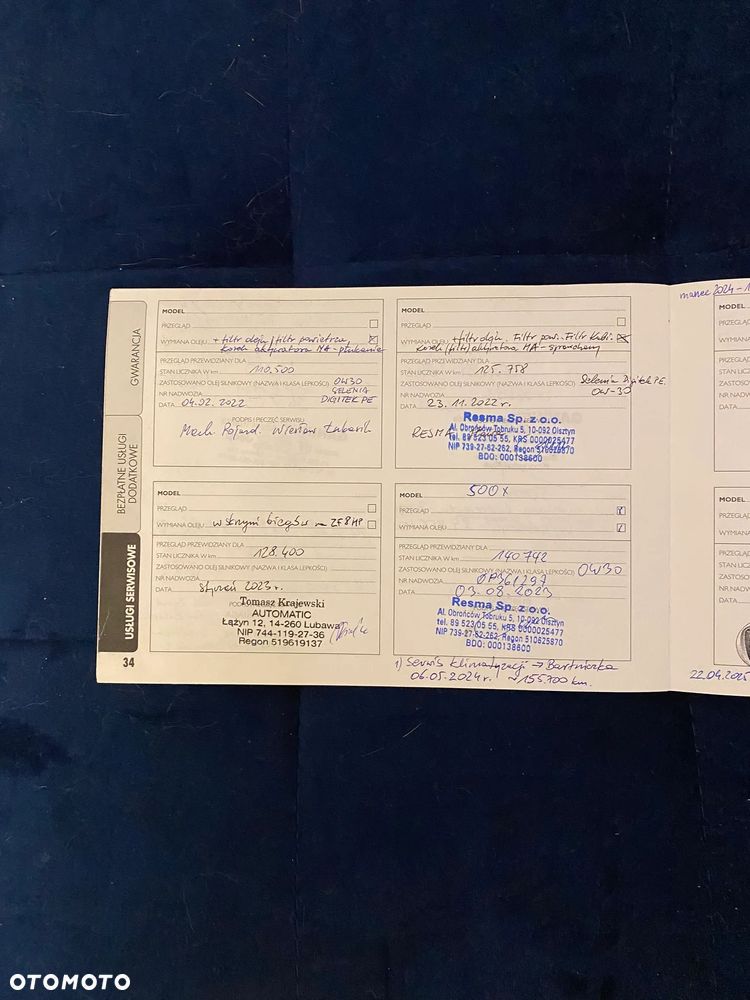 GWARANCJA
BEZPŁATNE USŁUGI
DODATKOWE
USŁUGI SERWISOWE
34
MODEL
PRZEGLĄD
WYMIANA OLEJU + filtr oleju/filtr powietrza,
korek aktywatora MA-płukanie
PRZEGLĄD PRZEWIDZIANY DLA
STAN LICZNIKA W km 110.500
ZASTOSOWANO OLEJ SILNIKOWY (NAZWA I KLASA LEPKOŚCI) 0W30
SELENIA
NR NADWOZIA DIGITEK PE
DATA 04.02.2022
PODPIS I PIECZĘĆ SERWISU
Mech. Pojazd. Wiesław
MODEL
PRZEGLĄD
WYMIANA OLEJU + filtr oleju. Filtr pow. Filtr Kabi.
korek/filtr/aktywatora MA-sprawdzony
PRZEGLĄD PRZEWIDZIANY DLA
STAN LICZNIKA W km 125.758
ZASTOSOWANO OLEJ SILNIKOWY (NAZWA I KLASA LEPKOŚCI) Selenia Digitek PE.
NR NADWOZIA 0W-30
DATA 23.11.2022r.
RESMA
Resma Sp. z o.o.
Al. Obrońców Tobruku 5, 10-092 Olsztyn
tel. 89 523 05 55, KRS 0000025477
NIP 739-27-62-262, Regon 510625870
BDO: 000138600
MODEL
PRZEGLĄD
WYMIANA OLEJU w skrzyni biegów ZF8HP
PRZEGLĄD PRZEWIDZIANY DLA
STAN LICZNIKA W km 128.400
ZASTOSOWANO OLEJ SILNIKOWY (NAZWA I KLASA LEPKOŚCI)
NR NADWOZIA
DATA styczeń 2023r.
Tomasz Krajewski
AUTOMATIC
Łążyn 12, 14-260 Lubawa
NIP 744-119-27-36
Regon 519619137
MODEL 500X
PRZEGLĄD
WYMIANA OLEJU
PRZEGLĄD PRZEWIDZIANY DLA
STAN LICZNIKA W km 140742
ZASTOSOWANO OLEJ SILNIKOWY (NAZWA I KLASA LEPKOŚCI) 0W30
NR NADWOZIA 0P361297
DATA 03.08.2023
Resma Sp. z o.o.
Al. Obrońców Tobruku 5, 10-092 Olsztyn
tel. 89 523 05 55, KRS 0000025477
NIP 739-27-62-262, Regon 510625870
BDO: 000138600
1) Serwis klimatyzacji → Bartnicka
06.05.2024r. ~155.700 km.
marzec 2024 - 1
MODEL
PRZEGLĄD
WYMIANA
PRZEGLĄD
STAN LICZ
ZASTOSO
NR NADW
DATA
MODEL
PRZEGLĄ
WYMIAN
PRZEGLĄ
STAN LI
ZASTOS
NR NAD
DATA
22.04.2025
OTOMOTO